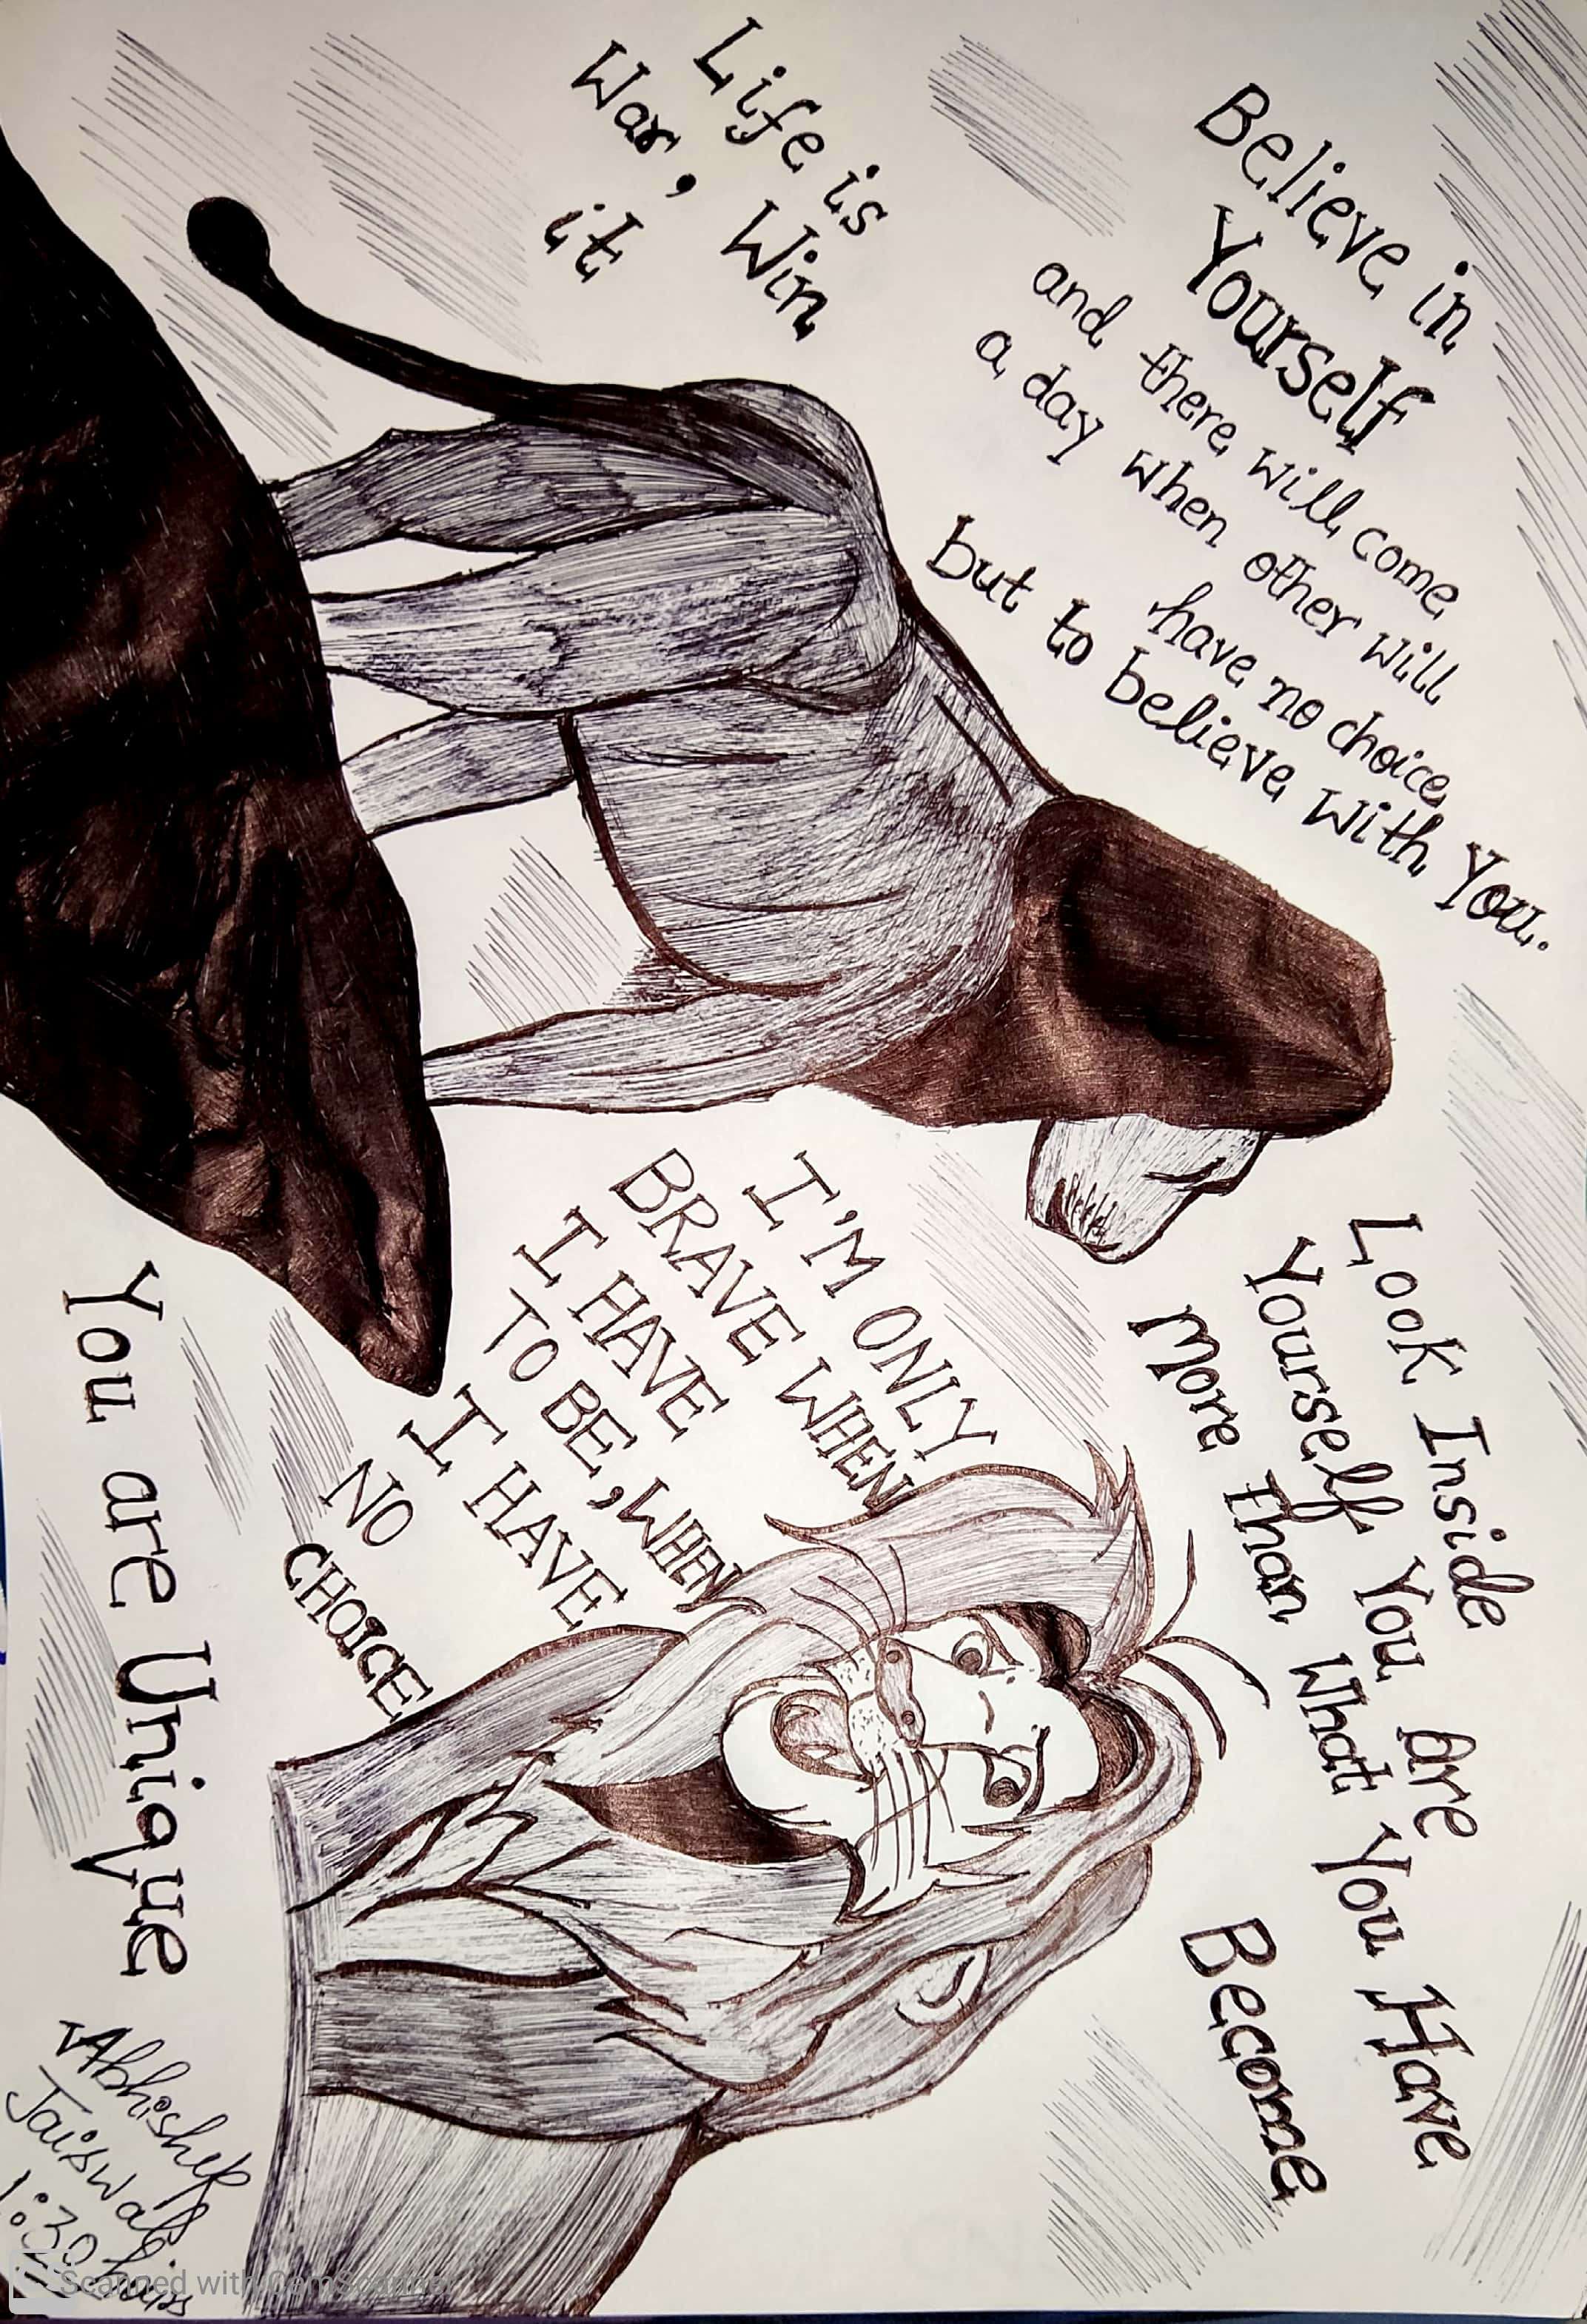 Believe in
Yourself
and there will come
a day when other will
have no choice
but to believe with You.
Life is
War, Win
it
Look Inside
Yourself You are
More Than What You Have
Become
I'M ONLY
BRAVE WHEN
I HAVE
TO BE, WHEN
I HAVE
NO
CHOICE
You are Unique
Abhishek
Jaiswal
1:30 hrs
Scanned with CamScanner